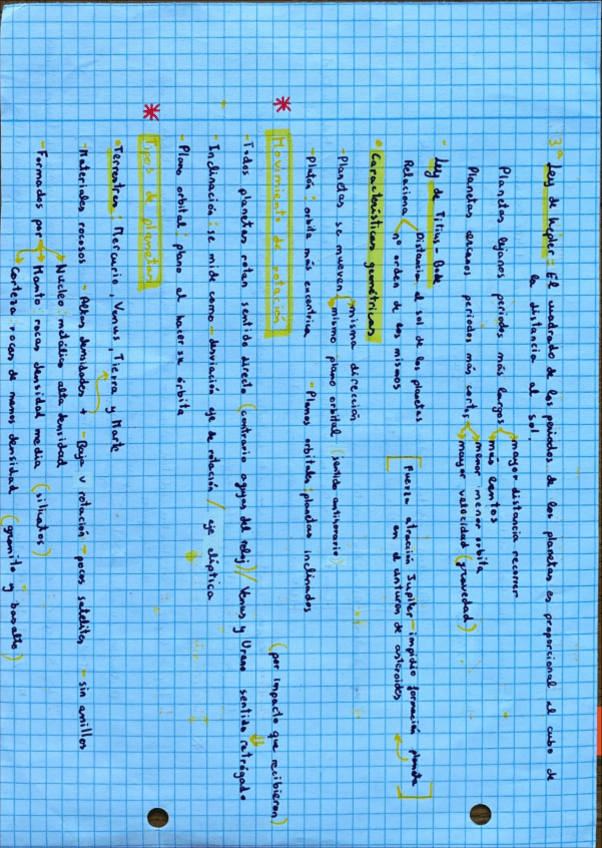 3ª Ley de Kepler = El cuadrado de los periodos de los planetas es proporcional al cubo de
la distancia al sol.
Planetas lejanos periodos más largos mayor distancia recorrer
más lentos
Planetas cercanos periodos más cortos menor órbita
mayor velocidad (gravedad)
- Ley de Titius-Bode
Relaciona Distancia al sol de los planetas
nº orden de los mismos
[Fuerza atracción Jupiter - impidió formación planeta
en el cinturón de asteroides]
• Características geométricas
- Planetas se mueven misma dirección
mismo plano orbital (sentido antihorario)
- Plutón: orbita más excentrica - Planos orbitales planetas inclinados
* Movimiento de rotación
(por impacto que recibieron)
- Todos planetas rotan sentido directo (contrario agujas del reloj) / Venus y Urano sentido retrógado
- Inclinación: se mide como - desviación eje de rotación / eje elíptica
- Plano orbital: plano al hacer su órbita
* Tipos de planetas
• Terrestres: Mercurio, Venus, Tierra y Marte
- Materiales rocosos - Altas densidades + - Baja v rotación - pocos satélites - sin anillos
- Formados por Núcleo: metálico alta densidad
Manto: rocas densidad media (silicatos)
Corteza: rocas de menos densidad (granito y basalto)